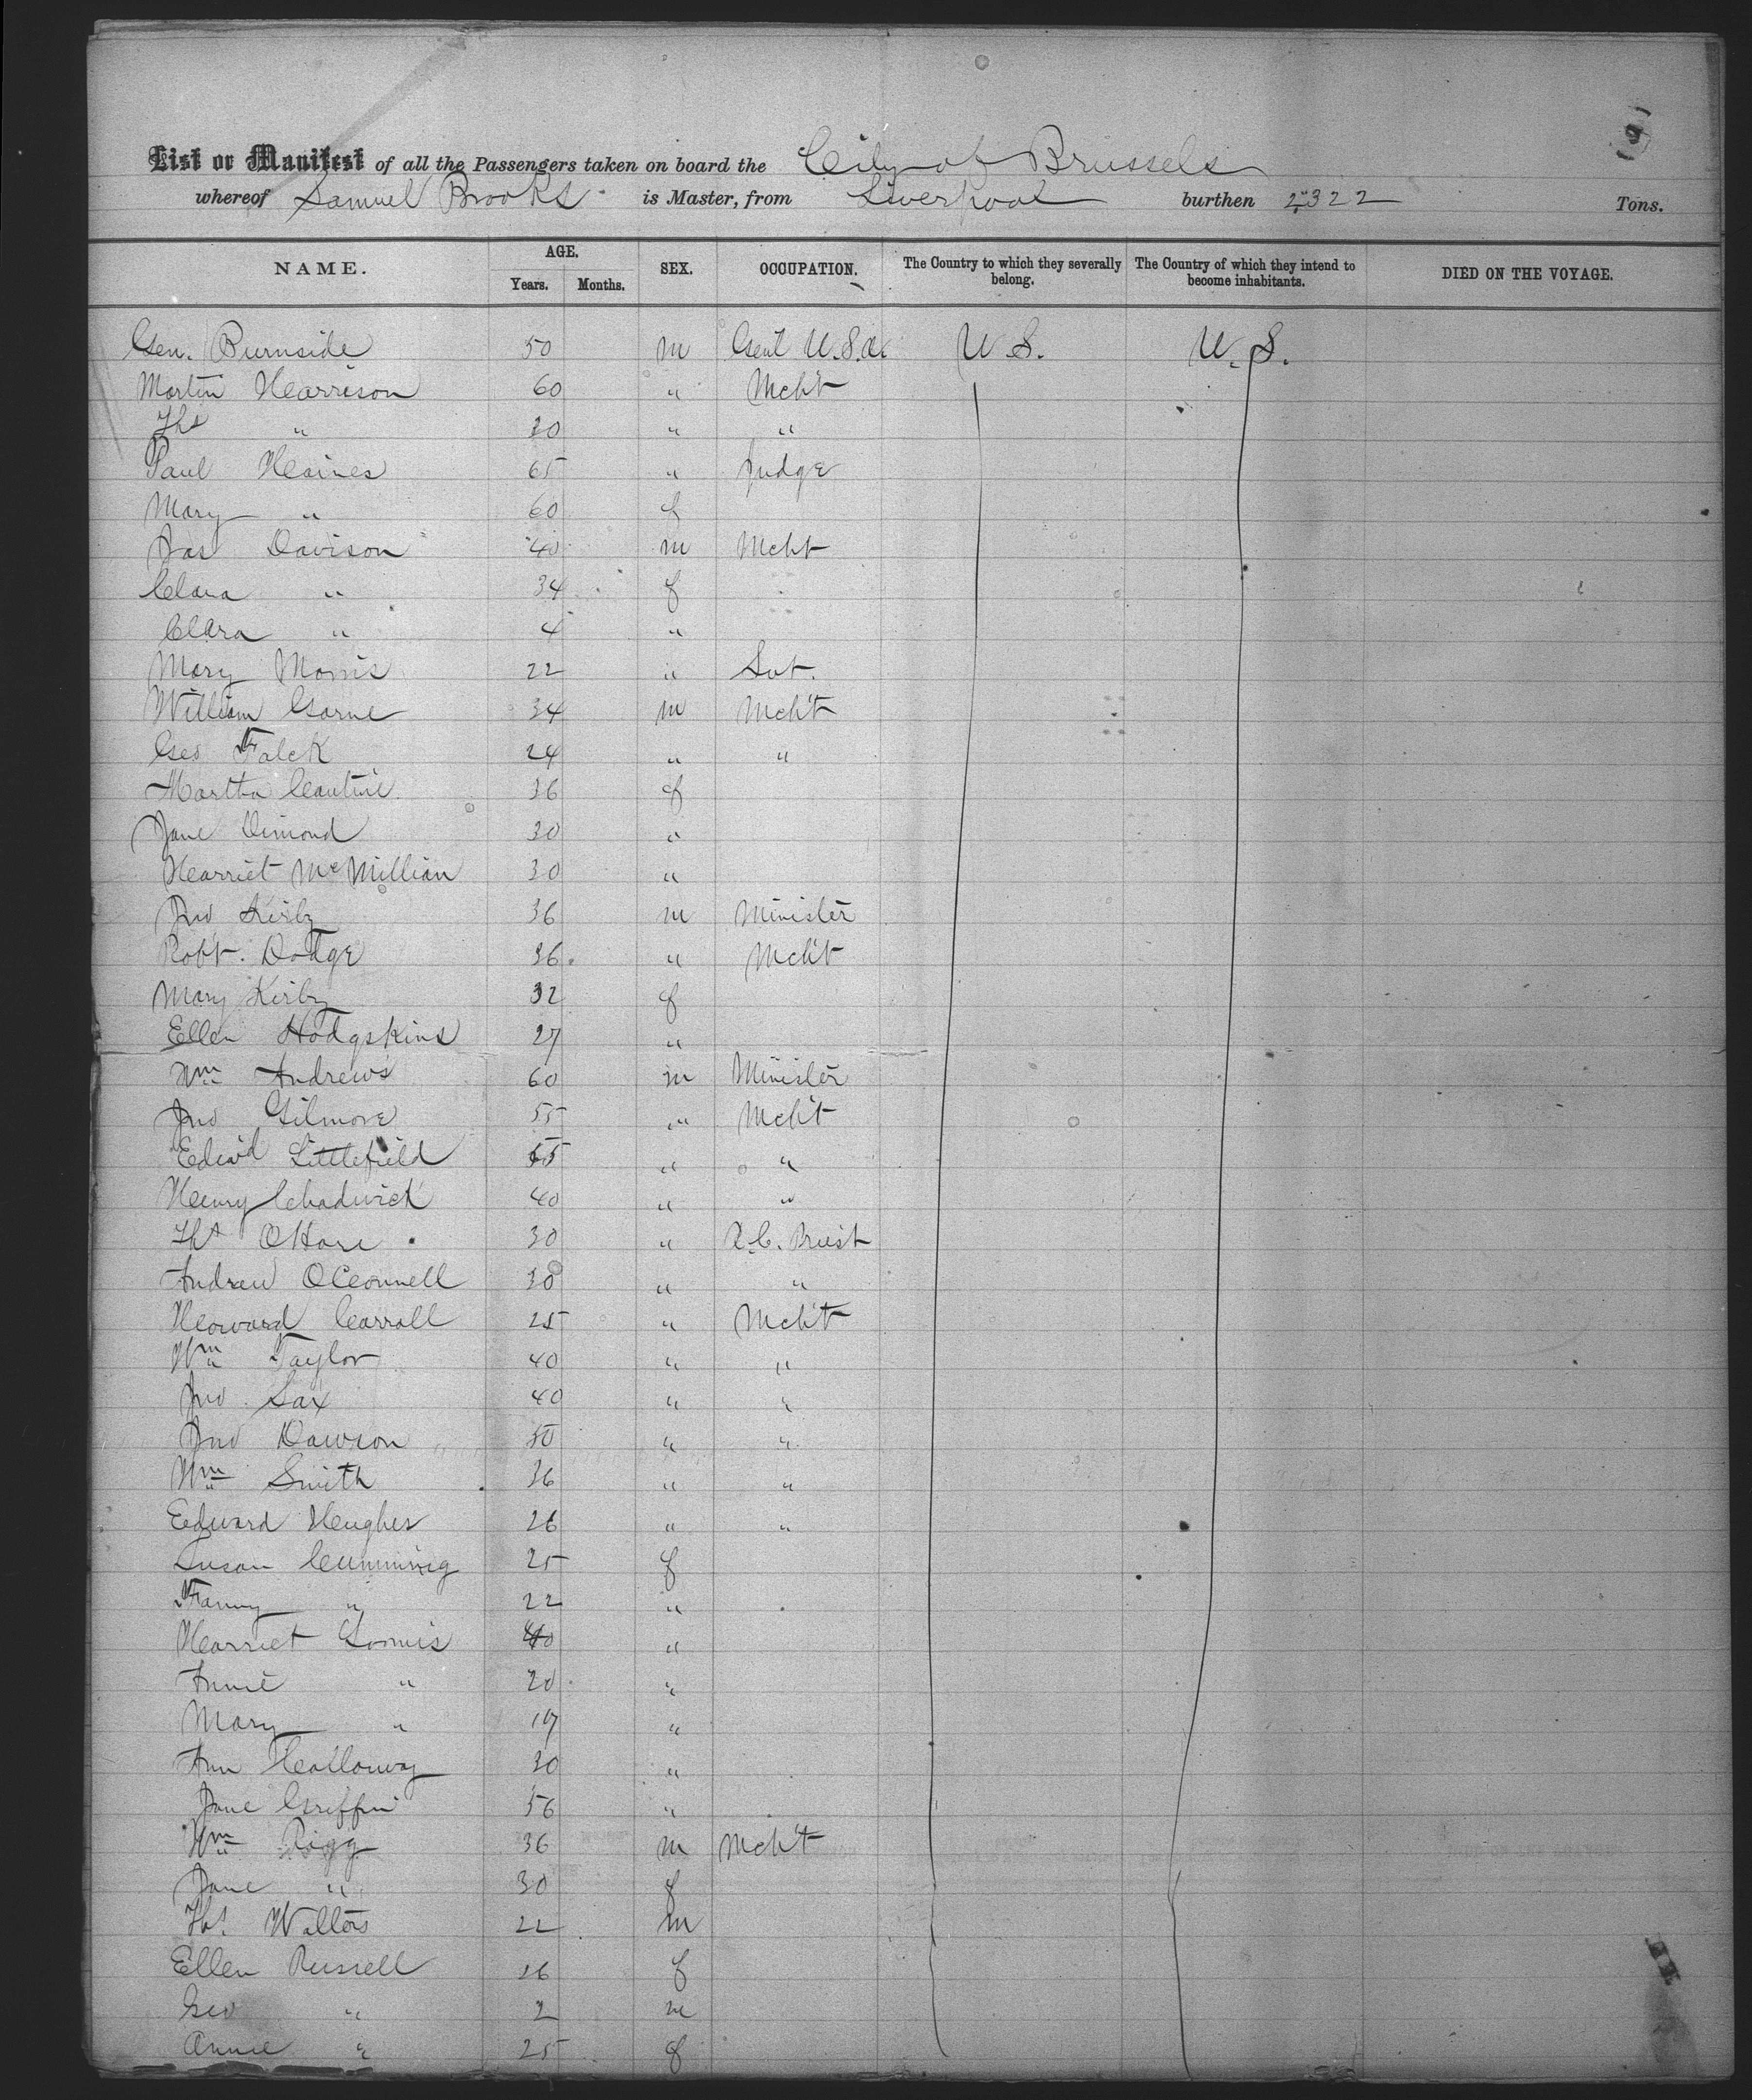 List or Manifest of all the Passengers taken on board the City of Brussels
whereof Samuel Brooks is Master, from Liverpool burthen 2322 Tons.
NAME. AGE. Years. Months. SEX. OCCUPATION. The Country to which they severally belong. The Country of which they intend to become inhabitants. DIED ON THE VOYAGE.
Gen. Burnside 50 m Genl U.S.A. U.S. U.S.
Martin Harrison 60 " Mcht
Ths " 30 " "
Paul Haines 65 " Judge
Mary " 60 f
Jas Davison 40 m Mcht
Clara " 34 f
Clara " 4 "
Mary Morris 22 " Svt.
William Garne 34 m Mch't
Geo Falck 24 " "
Martha 36 f
Jane Dimond 30 "
Harriet McMillian 30 "
Jno Kirby 36 m Minister
Robt. Dodge 36 " Mch't
Mary Kirby 32 f
Ellen Hodgskins 27 "
Wm Andrews 60 m Minister
Jno Gilmore 55 " Mch't
Edwd Littlefield 55 " "
Henry Chadwick 40 " "
Ths OHare 30 " R.C. Priest
Andrew OConnell 30 " "
Howard Carroll 25 " Mch't
Wm Taylor 40 " "
Jno Sax 40 " "
Jno Dawson 50 " "
Wm Smith 36 " "
Edward Hughes 26 " "
Susan Cumming 25 f
Fanny " 22 "
Harriet Loomis 40 "
Annie " 20 "
Mary " 17 "
Ann Halloway 30 "
Jane Griffin 56 "
Wm Rigg 36 m Mch't
Jane " 30 f
Ths. Walters 22 m
Ellen Russell 26 f
Geo " 2 m
Annie " 25 f